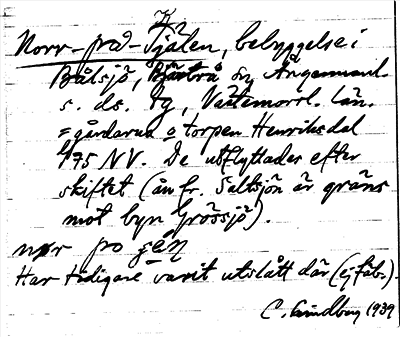 K
Norr-på-Tjälen, bebyggelse i
Bålsjö, Bjärtrå sn Ångermanl.
s. ds. dg, Västernorrl. län.
= gårdarna o torpen Henriksdal
175 NV. De utflyttades efter
skiftet (ån fr. Saltsjön är gräns
mot byn Grössjö).
nor po
Har tidigare varit utslått där (ej fäb.).
C. Lindberg 1939